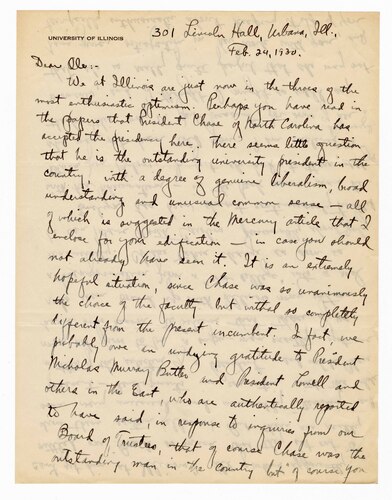 UNIVERSITY OF ILLINOIS
301 Lincoln Hall, Urbana, Ill.,
Feb. 24, 1930.
Dear :-
We at Illinois are just now in the throes of the
most enthusiastic optimism. Perhaps you have read in
the papers that President Chase of North Carolina has
accepted the presidency here. There seems little question
that he is the outstanding university president in the
country, with a degree of genuine liberalism, broad
understanding and unusual common sense — all
of which is suggested in the Mercury article that I
enclose for your edification — in case you should
not already have seen it. It is an extremely
hopeful situation, since Chase was so unanimously
the choice of the faculty but withal so completely
different from the present incumbent. In fact, we
probably owe in undying gratitude to President
Nicholas Murray Butler and President Lowell and
others in the East, who are authentically reported
to have said, in response to inquiries from our
Board of Trustees, that of course Chase was the
outstanding man in the country but "of course you